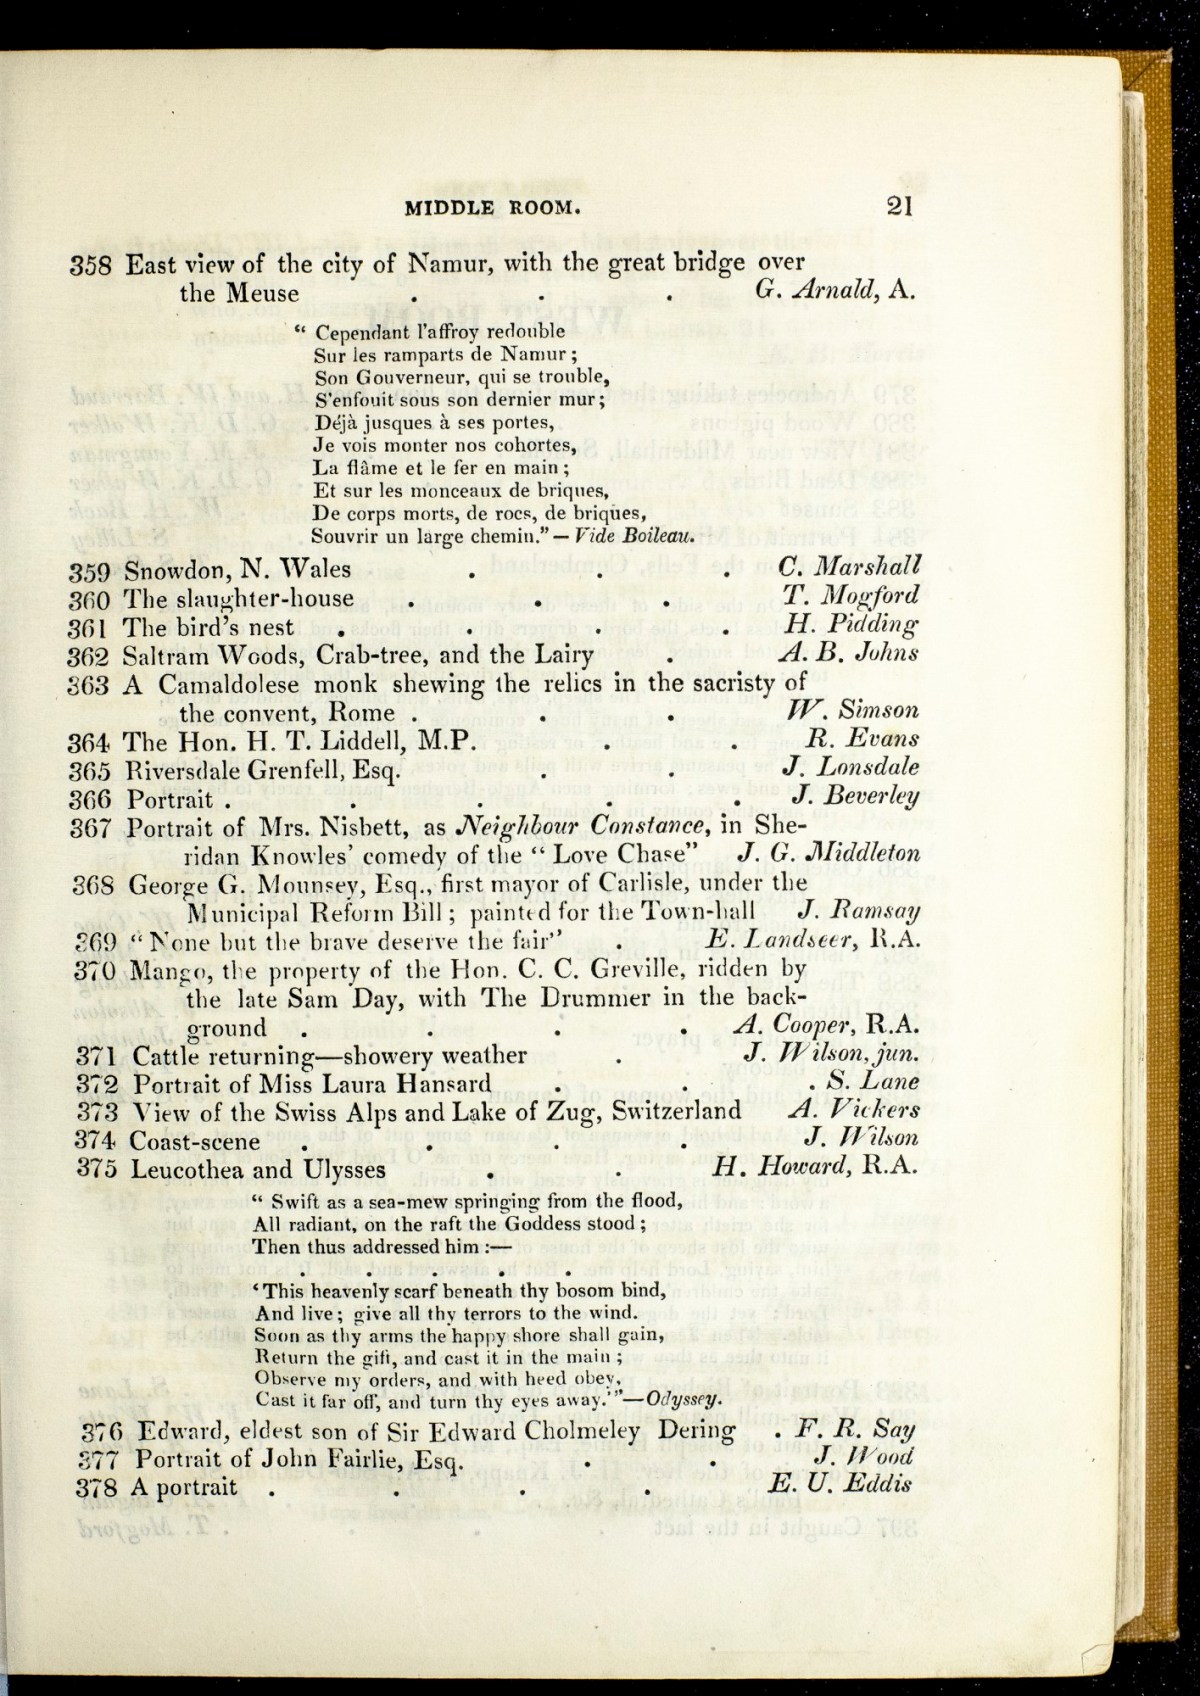 MIDDLE ROOM. 21
358 East view of the city of Namur, with the great bridge over
the Meuse . . . G. Arnald, A.
“ Cependant l'affroy redouble
Sur les ramparts de Namur ;
Son Gouverneur, qui se trouble,
S'enfouit sous son dernier mur ;
Déjà jusques à ses portes,
Je vois monter nos cohortes,
La flâme et le fer en main ;
Et sur les monceaux de briques,
De corps morts, de rocs, de briques,
Souvrir un large chemin.” — Vide Boileau.
359 Snowdon, N. Wales . . . C. Marshall
360 The slaughter-house . . . T. Mogford
361 The bird's nest . . . . H. Pidding
362 Saltram Woods, Crab-tree, and the Lairy . A. B. Johns
363 A Camaldolese monk shewing the relics in the sacristy of
the convent, Rome . . . W. Simson
364 The Hon. H. T. Liddell, M.P. . . R. Evans
365 Riversdale Grenfell, Esq. . . J. Lonsdale
366 Portrait . . . . . J. Beverley
367 Portrait of Mrs. Nisbett, as Neighbour Constance, in She-
ridan Knowles' comedy of the “ Love Chase” J. G. Middleton
368 George G. Mounsey, Esq., first mayor of Carlisle, under the
Municipal Reform Bill ; painted for the Town-hall J. Ramsay
369 “ None but the brave deserve the fair” . E. Landseer, R.A.
370 Mango, the property of the Hon. C. C. Greville, ridden by
the late Sam Day, with The Drummer in the back-
ground . . . . A. Cooper, R.A.
371 Cattle returning—showery weather . J. Wilson, jun.
372 Portrait of Miss Laura Hansard . . . S. Lane
373 View of the Swiss Alps and Lake of Zug, Switzerland A. Vickers
374 Coast-scene . . . . J. Wilson
375 Leucothea and Ulysses . . H. Howard, R.A.
“ Swift as a sea-mew springing from the flood,
All radiant, on the raft the Goddess stood ;
Then thus addressed him :—
. . . . .
‘ This heavenly scarf beneath thy bosom bind,
And live ; give all thy terrors to the wind.
Soon as thy arms the happy shore shall gain,
Return the gift, and cast it in the main ;
Observe my orders, and with heed obey,
Cast it far off, and turn thy eyes away.’”—Odyssey.
376 Edward, eldest son of Sir Edward Cholmeley Dering . F. R. Say
377 Portrait of John Fairlie, Esq. . . J. Wood
378 A portrait . . . . E. U. Eddis